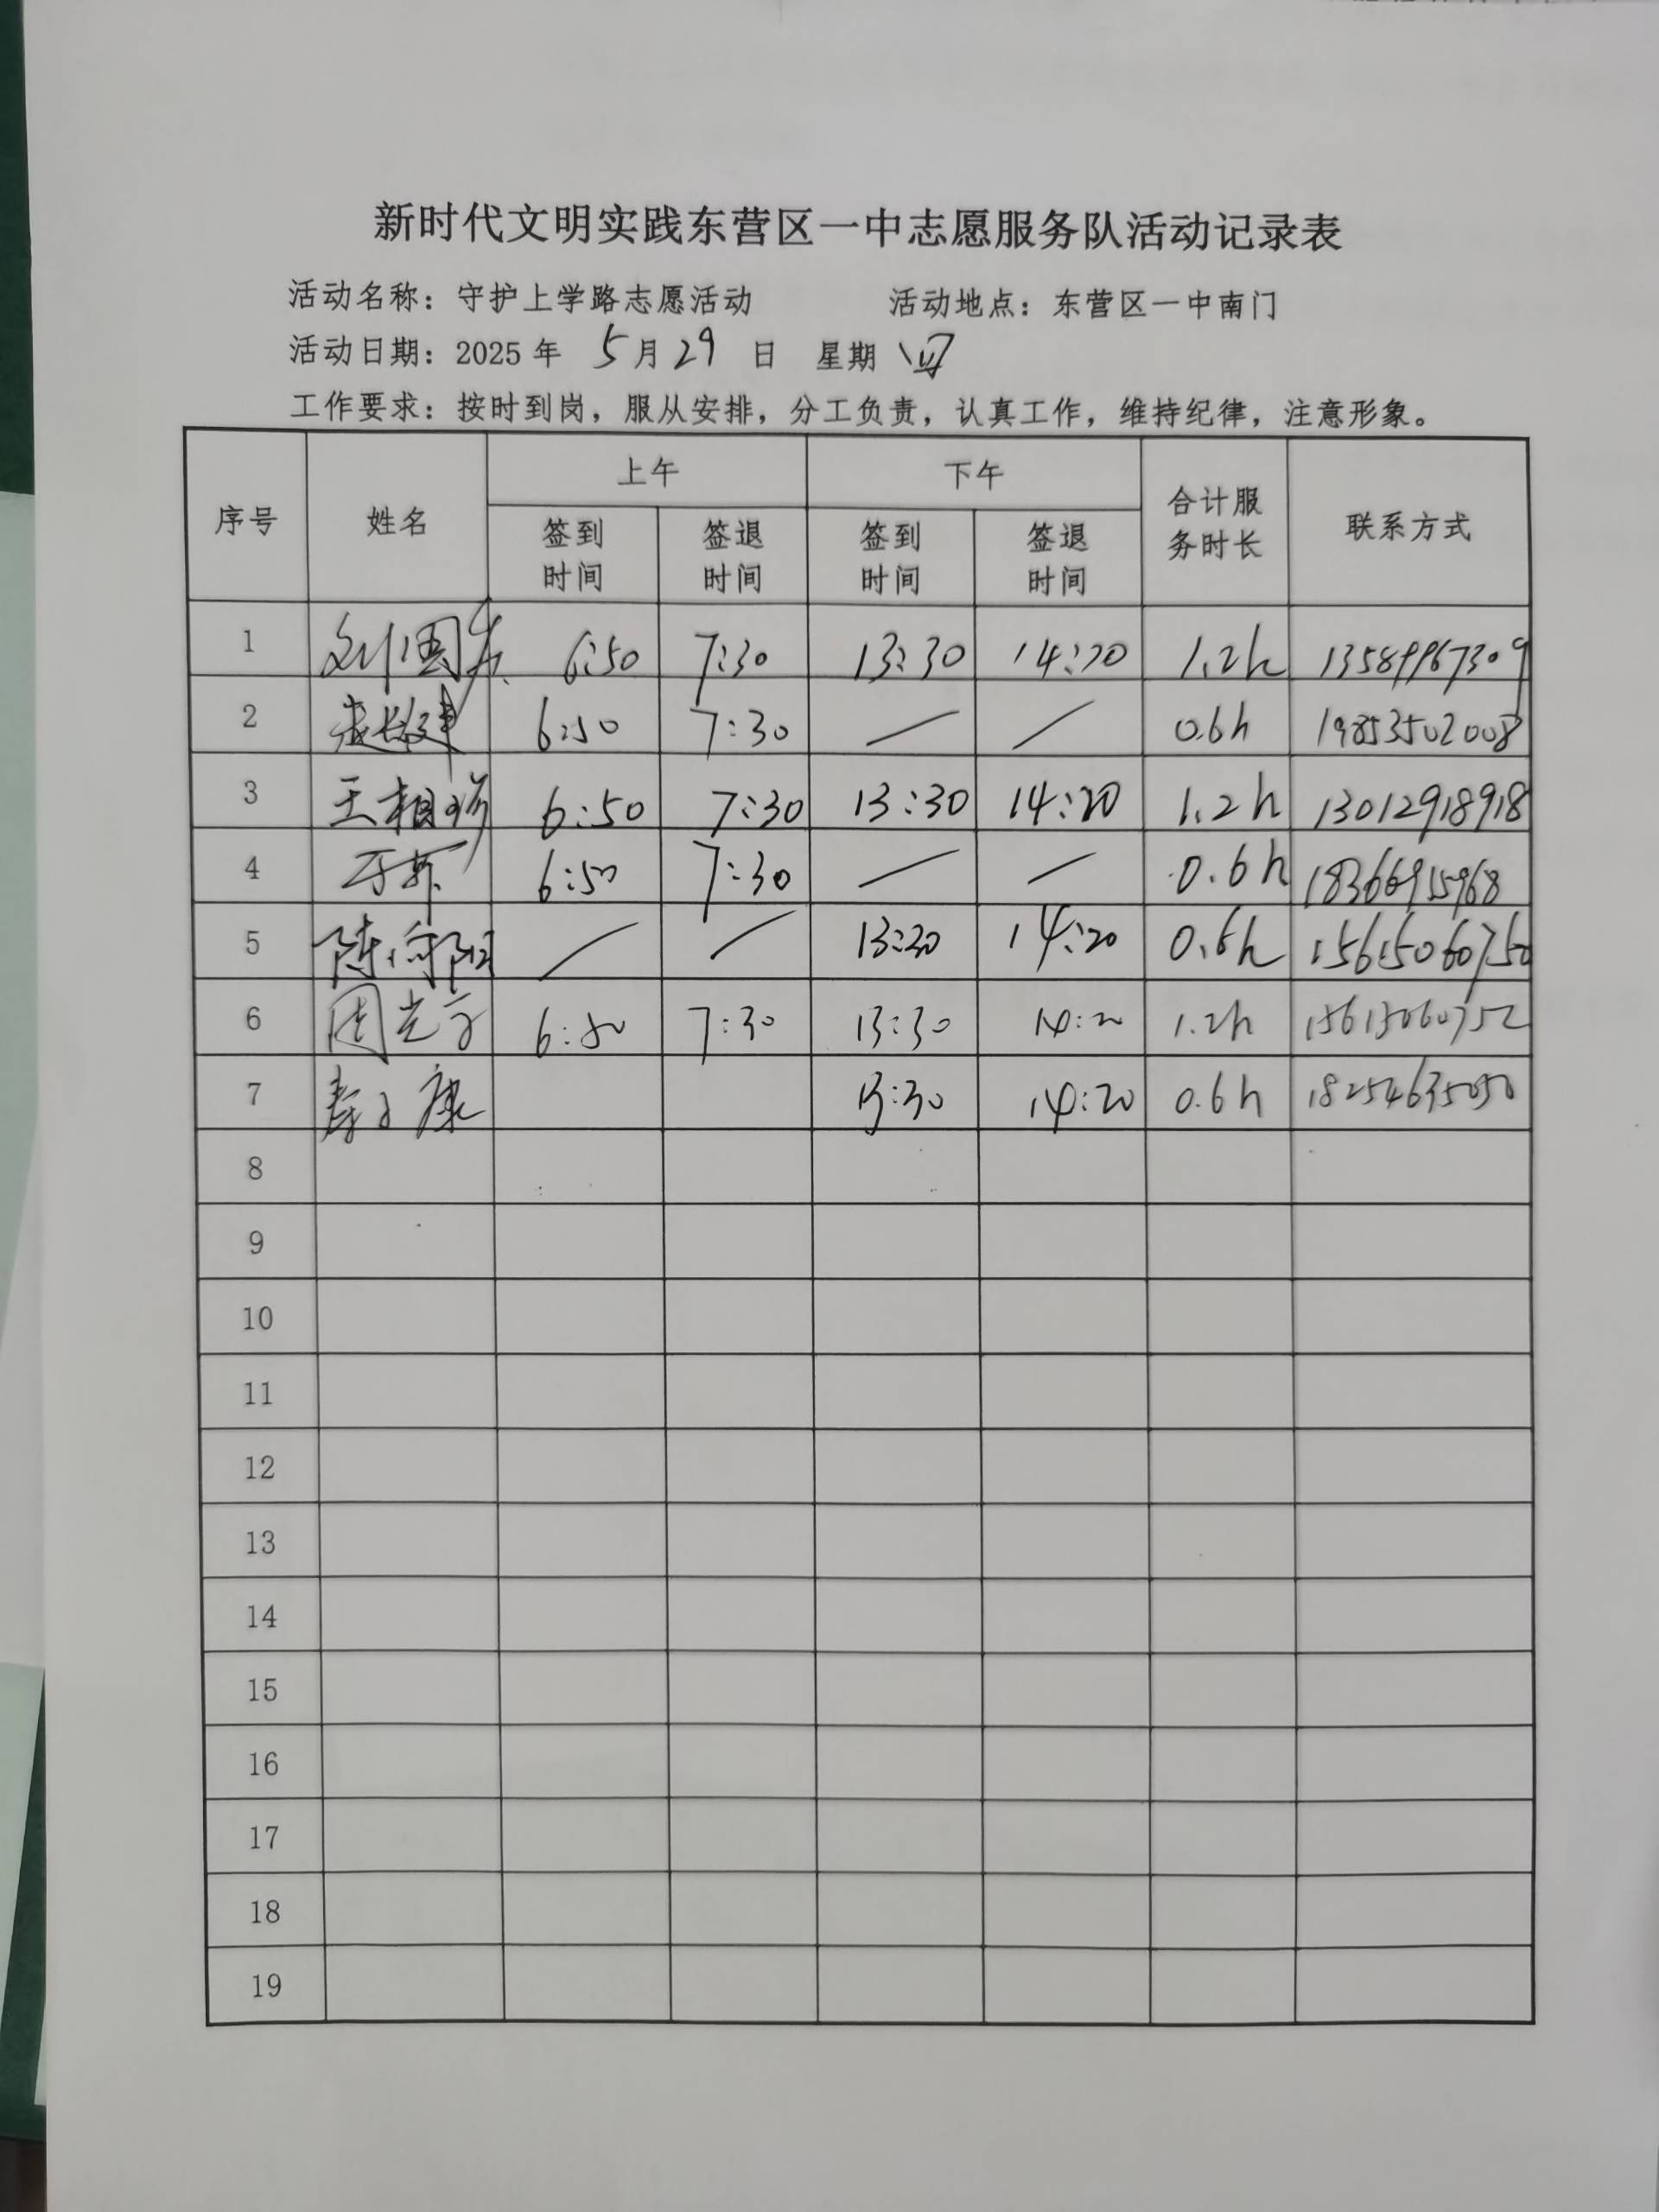 新时代文明实践东营区一中志愿服务队活动记录表
活动名称：守护上学路志愿活动 活动地点：东营区一中南门
活动日期：2025年 5月29日 星期四
工作要求：按时到岗，服从安排，分工负责，认真工作，维持纪律，注意形象。
序号 姓名 上午 下午 合计服务时长 联系方式
签到时间 签退时间 签到时间 签退时间
1 刘国 6:50 7:30 13:30 14:20 1.2h 13589967309
2 6:50 7:30 — — 0.6h 19853502008
3 王相 6:50 7:30 13:30 14:20 1.2h 13012918918
4 6:50 7:30 — — 0.6h 18366915968
5 陈向阳 — — 13:30 14:20 0.6h 15615060750
6 周光 6:50 7:30 13:30 14:20 1.2h 15615060752
7 康 13:30 14:20 0.6h 18254635050
8
9
10
11
12
13
14
15
16
17
18
19